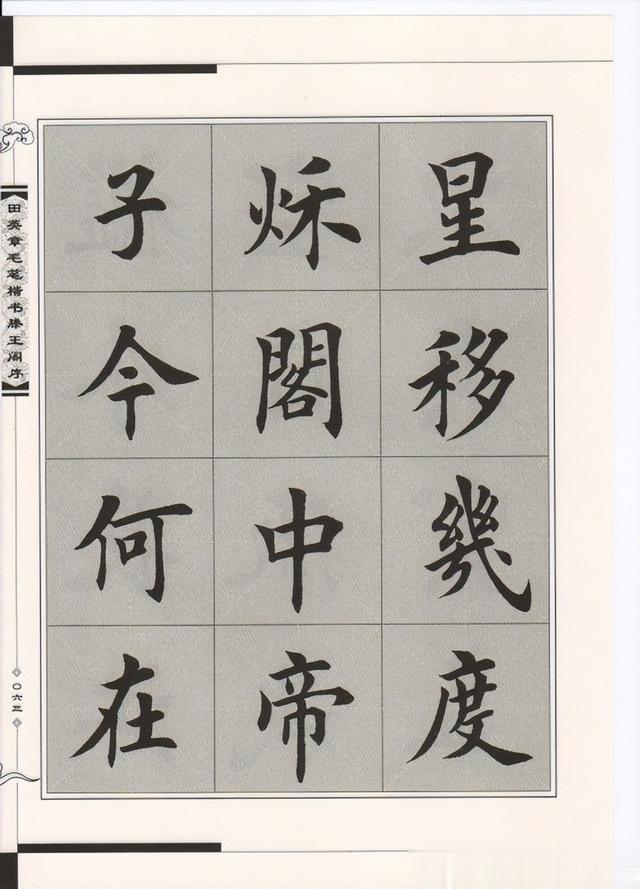 星移幾度
秌閣中帝
子今何在
田英章毛笔楷书滕王阁序
〇六三